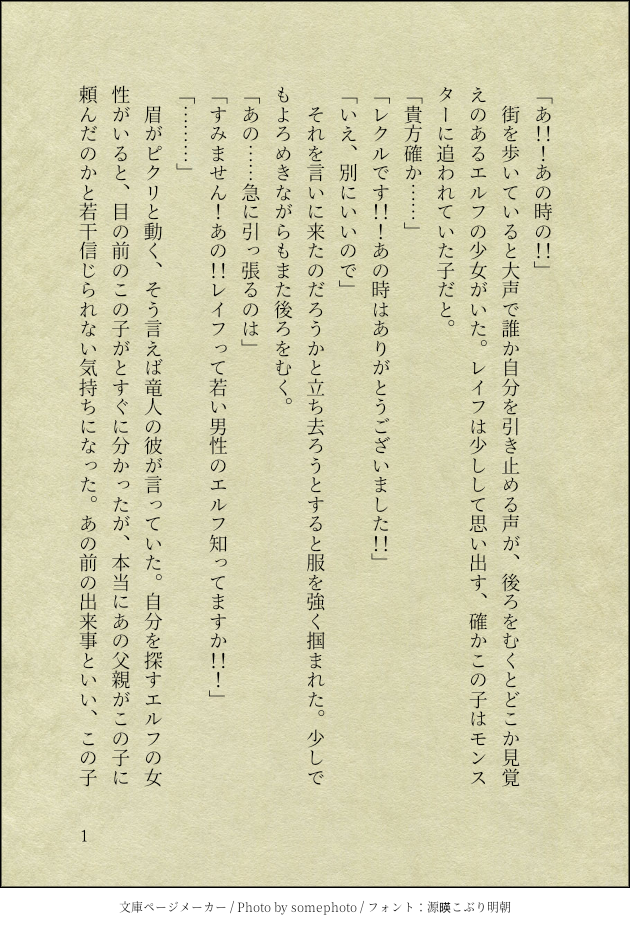 「あ!!！あの時の!!」
　街を歩いていると大声で誰か自分を引き止める声が、後ろをむくとどこか見覚
えのあるエルフの少女がいた。レイフは少しして思い出す、確かこの子はモンス
ターに追われていた子だと。
「貴方確か……」
「レクルです!!！あの時はありがとうございました!!」
「いえ、別にいいので」
　それを言いに来たのだろうかと立ち去ろうとすると服を強く掴まれた。少しで
もよろめきながらもまた後ろをむく。
「あの……急に引っ張るのは」
「すみません！あの!!レイフって若い男性のエルフ知ってますか!!！」
「………」
　眉がピクリと動く、そう言えば竜人の彼が言っていた。自分を探すエルフの女
性がいると、目の前のこの子がとすぐに分かったが、本当にあの父親がこの子に
頼んだのかと若干信じられない気持ちになった。あの前の出来事といい、この子
1
文庫ページメーカー / Photo by somephoto / フォント：源暎こぶり明朝